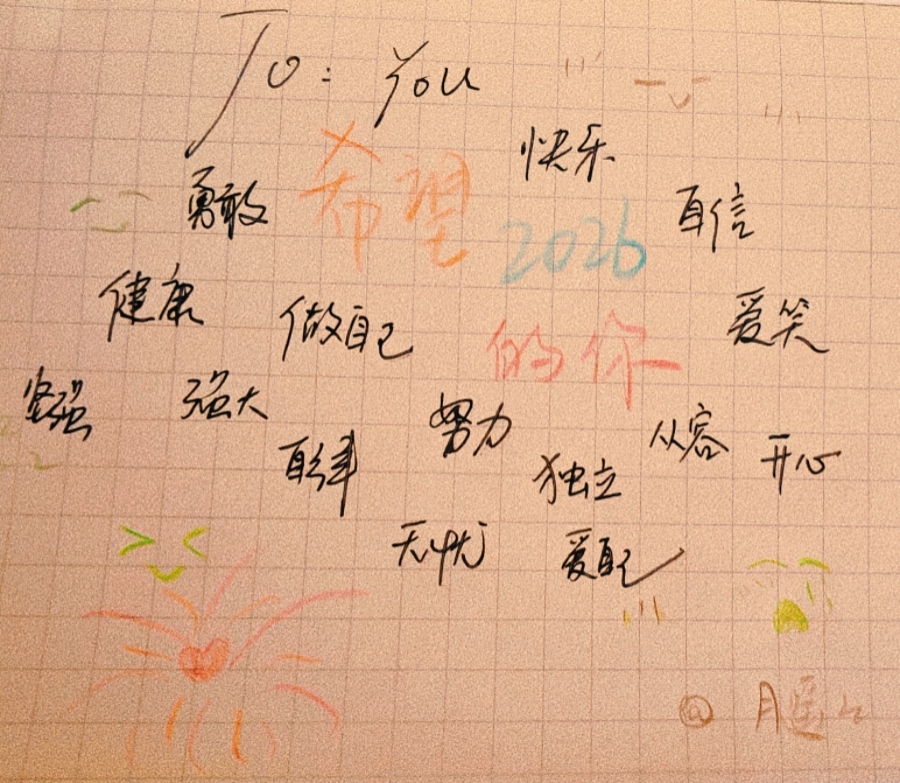 To: You
快乐
勇敢
希望
2026
自信
健康
做自己
的你
爱笑
坚强
强大
努力
从容
自律
独立
开心
无忧
爱自己
@月